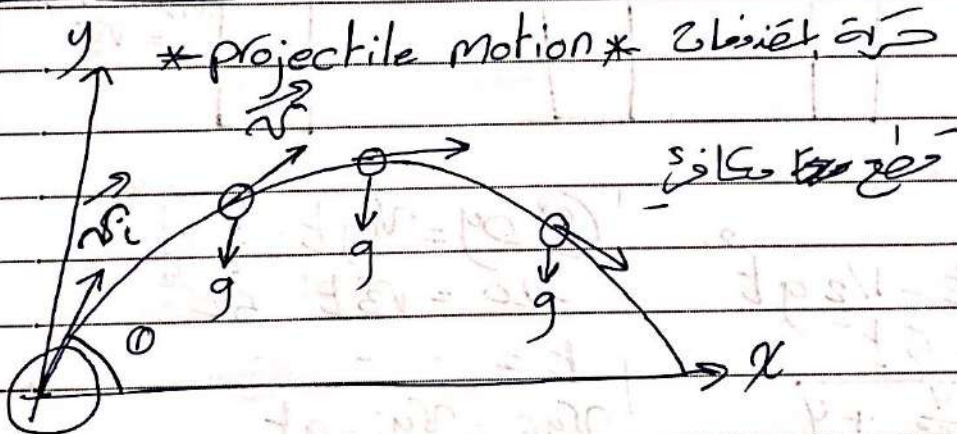 y * projectile motion * حركة المقذوفات
v
قطع مكافئ
v i
g
g
g
θ
x